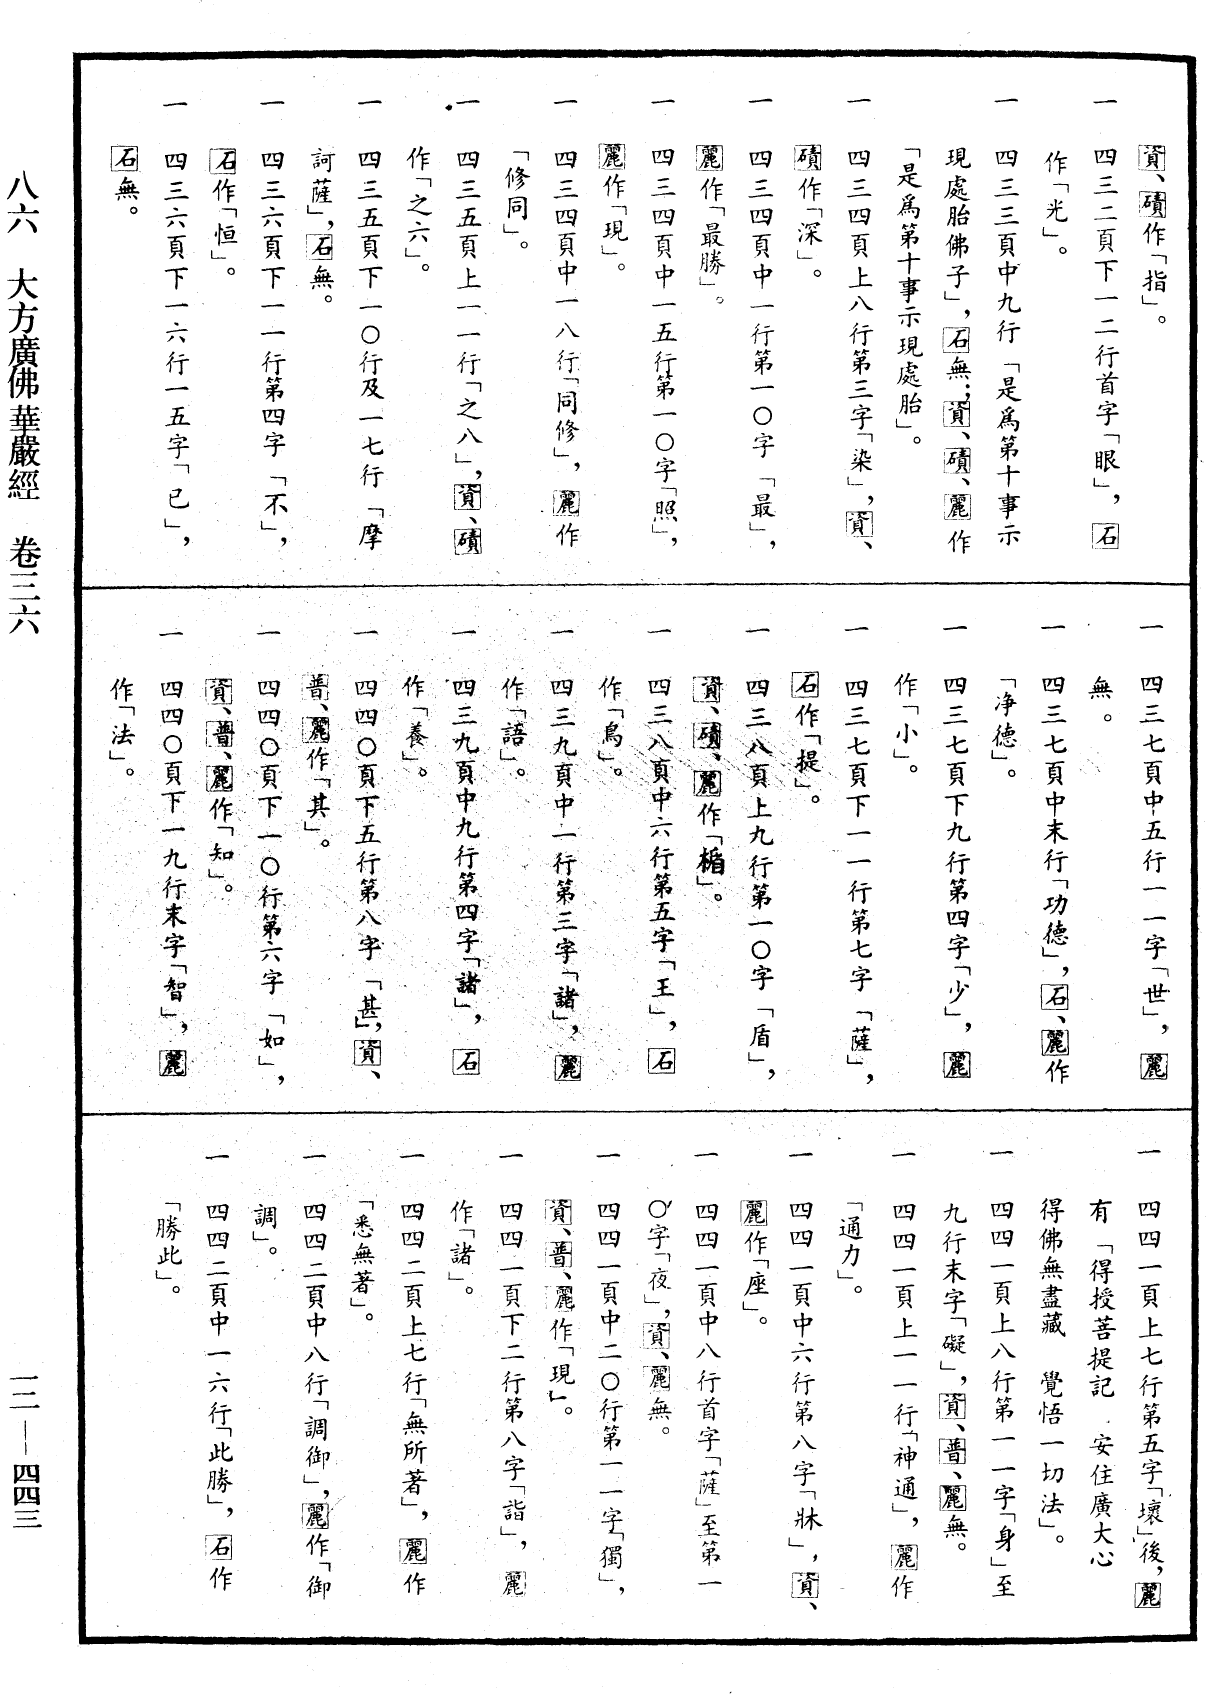 資、磧作「指」。
一 四三二頁下一二行首字「眼」，石
作「光」。
一 四三三頁中九行「是爲第十事示
現處胎佛子」，石無；資、磧、麗作
「是爲第十事示現處胎」。
一 四三四頁上八行第三字「染」，資、
磧作「深」。
一 四三四頁中一行第一〇字「最」，
麗作「最勝」。
一 四三四頁中一五行第一〇字「照」，
麗作「現」。
一 四三四頁中一八行「同修」，麗作
「修同」。
一 四三五頁上一一行「之八」，資、磧
作「之六」。
一 四三五頁下一〇行及一七行「摩
訶薩」，石無。
一 四三六頁下一一行第四字「不」，
石作「恒」。
一 四三六頁下一六行一五字「已」，
石無。
一 四三七頁中五行一一字「世」，麗
無。
一 四三七頁中末行「功德」，石、麗作
「净德」。
一 四三七頁下九行第四字「少」，麗
作「小」。
一 四三七頁下一一行第七字「薩」，
石作「提」。
一 四三八頁上九行第一〇字「盾」，
資、磧、麗作「楯」。
一 四三八頁中六行第五字「王」，石
作「鳥」。
一 四三九頁中一行第三字「諸」，麗
作「語」。
一 四三九頁中九行第四字「諸」，石
作「養」。
一 四四〇頁下五行第八字「甚」，資、
普、麗作「其」。
一 四四〇頁下一〇行第六字「如」，
資、普、麗作「知」。
一 四四〇頁下一九行末字「智」，麗
作「法」。
一 四四一頁上七行第五字「壞」後，麗
有「得授菩提記 安住廣大心
得佛無盡藏 覺悟一切法」。
一 四四一頁上八行第一一字「身」至
九行末字「礙」，資、普、麗無。
一 四四一頁上一一行「神通」，麗作
「通力」。
一 四四一頁中六行第八字「牀」，資、
麗作「座」。
一 四四一頁中八行首字「薩」至第一
〇字「夜」，資、麗無。
一 四四一頁中二〇行第一一字「獨」，
資、普、麗作「現」。
一 四四一頁下二行第八字「詣」，麗
作「諸」。
一 四四二頁上七行「無所著」，麗作
「悉無著」。
一 四四二頁中八行「調御」，麗作「御
調」。
一 四四二頁中一六行「此勝」，石作
「勝此」。
八六 大方廣佛華嚴經 卷三六
一二—四四三